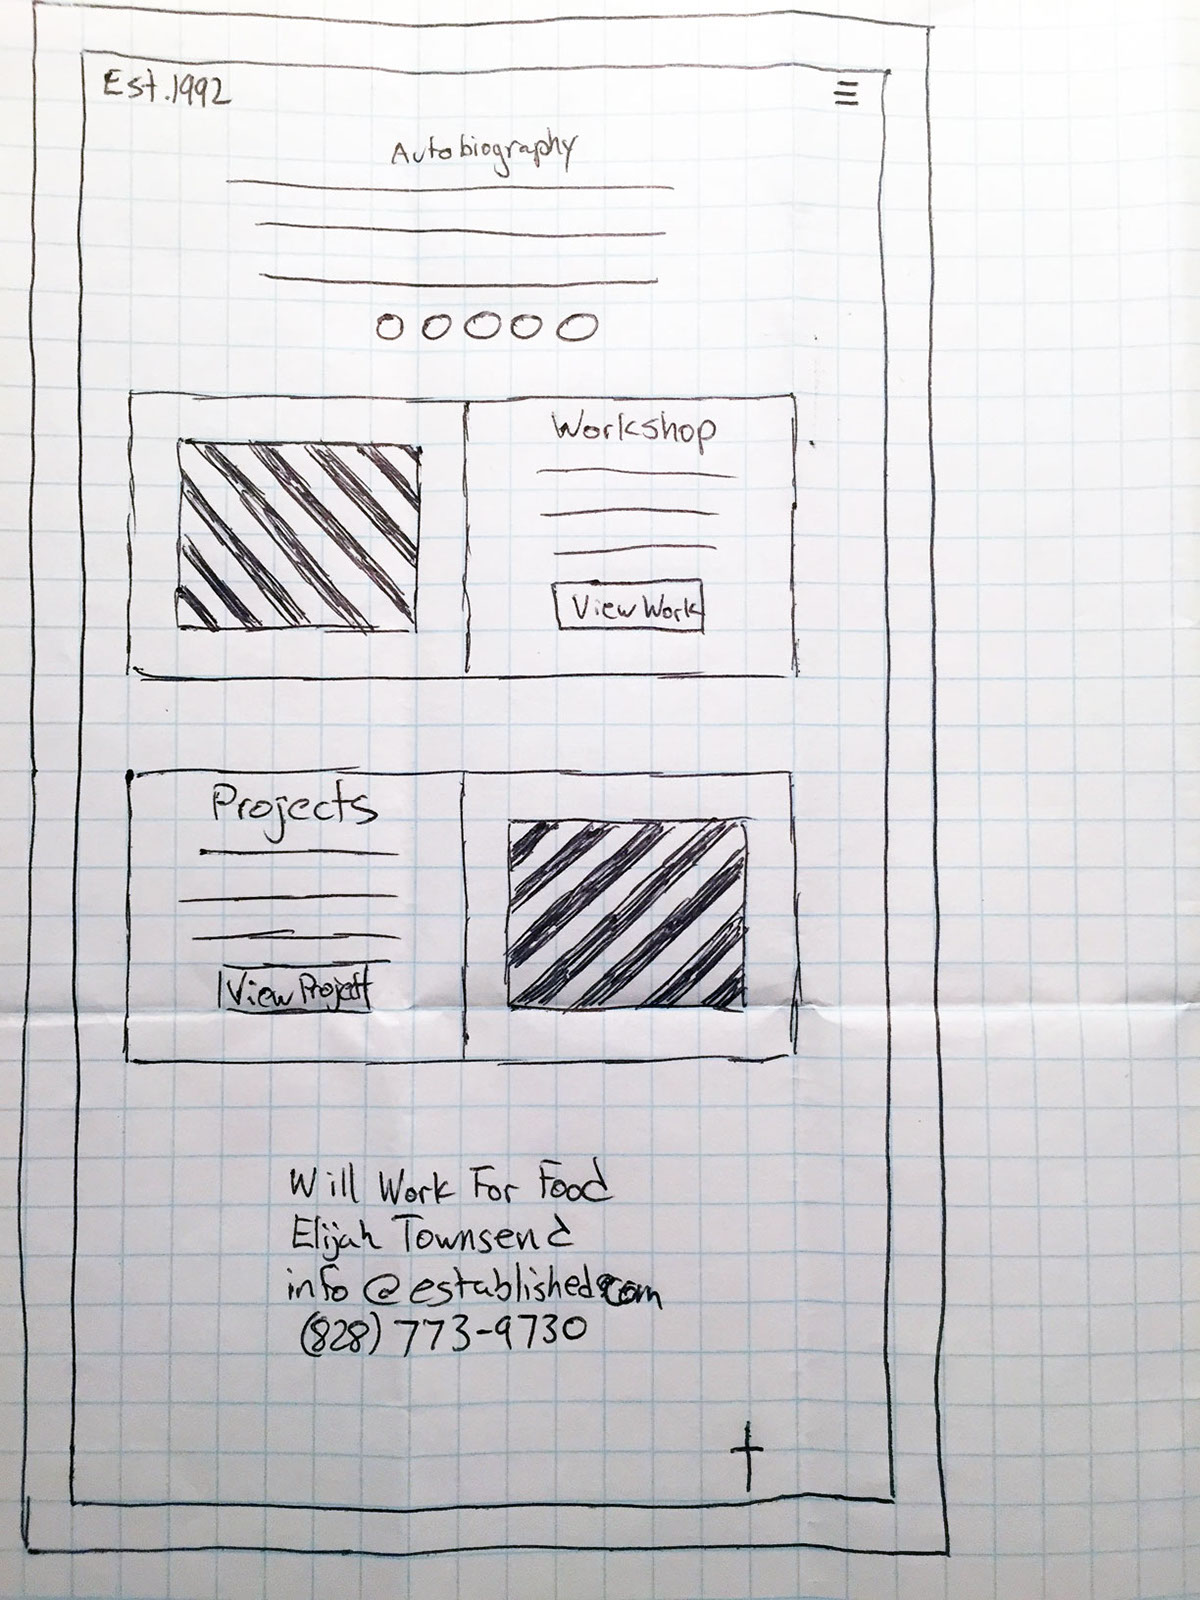 Est.1992
Autobiography
Workshop
View Work
Projects
View Project
Will Work For Food
Elijah Townsend
info@established.com
(828) 773-9730